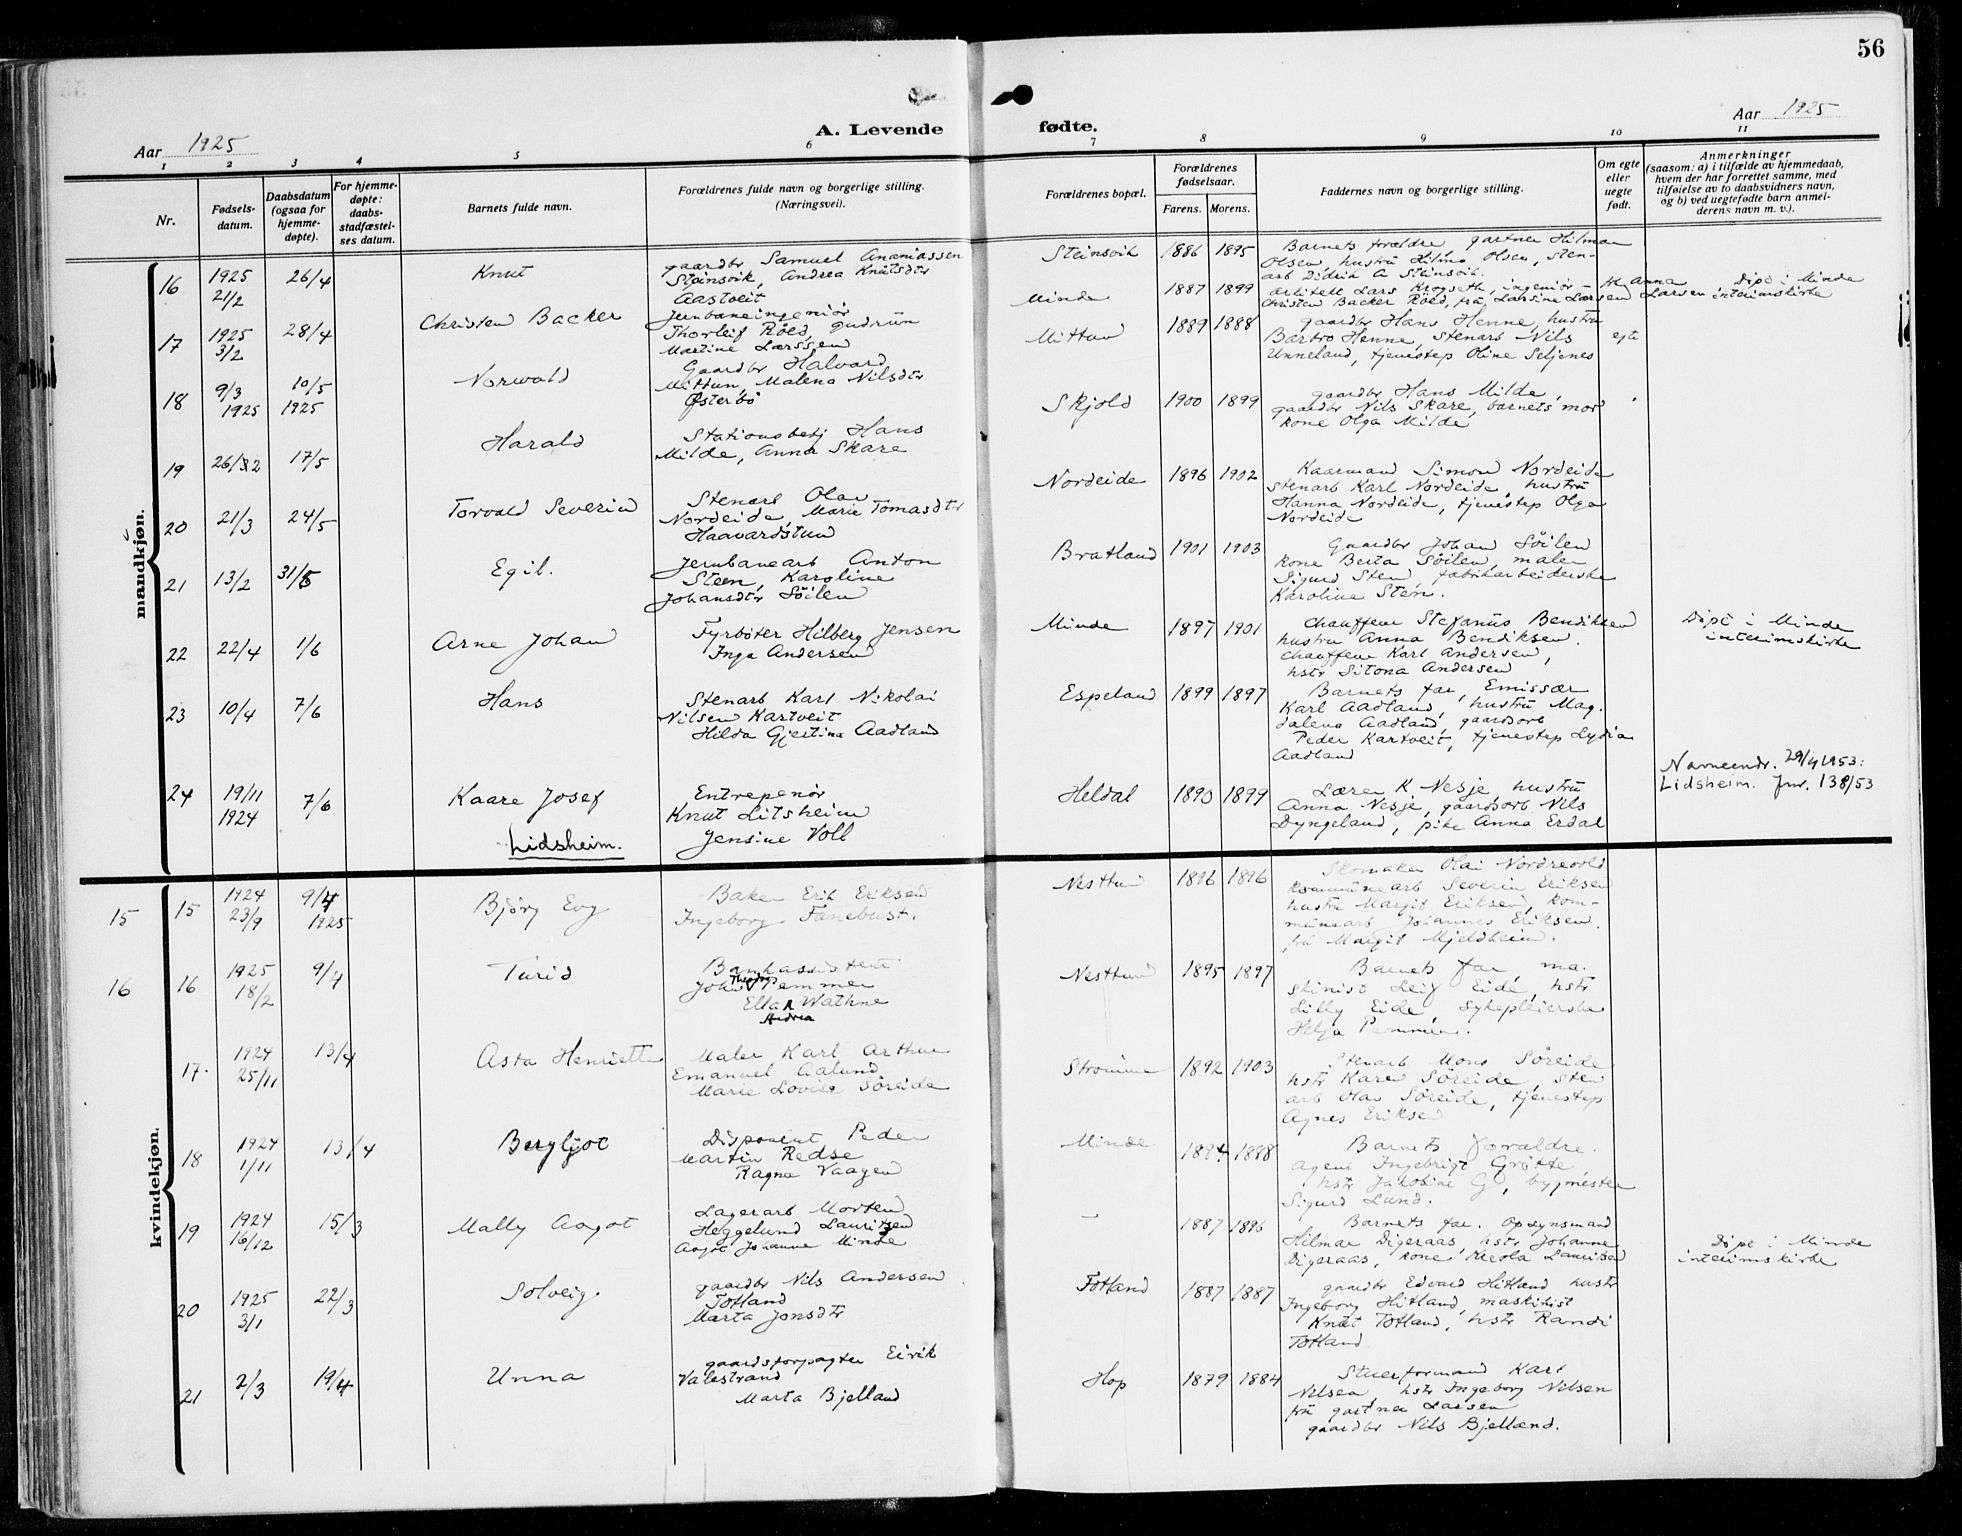 56
A. Levende
fødte.
Aar 1925
Aar 1925
1 2 3 4 5 6 7 8 9 10 11
Nr.
Fødsels-
datum.
Daabsdatum
(ogsaa for
hjemme-
døpte).
For hjemme-
døpte:
daabs-
stadfæstel-
ses datum.
Barnets fulde navn.
Forældrenes fulde navn og borgerlige stilling.
(Næringsvei).
Forældrenes bopæl.
Forældrenes
fødselsaar.
Farens. Morens.
Faddernes navn og borgerlige stilling.
Om egte
eller
uegte
født.
Anmerkninger
(saasom: a) i tilfælde av hjemmedaab,
hvem der har forrettet samme, med
tilføielse av to daabsvidners navn,
og b) ved uegtefødte barn anmel-
derens navn m. v.).
mandkjøn.
16 1925 21/2 26/4 Knut
gaardbr Samuel Ananiassen
Steinsvik, Andrea Knutsdtr
Aastveit
Steinsvik 1886 1895
Barnets forældre gartner Hilmar
Olsen, hustru Hilma Olsen, sten-
arb Didrik A Steinsvik.
17 1925 3/2 28/4 Christen Backer
Jernbaneingeniør
Thorleif Røed, Gudrun
Martine Larssen
Minde 1887 1899
arkitekt Lars Krogseth, ingeniør
Christen Backer Røed, fru Larsine Larsen Anna Larsen
Døpt i Minde
interimskirke
18 9/3 1925 10/5 1925 Norvald
Gaardbr Halvard
Mittun, Malena Nilsdtr
Østerbø
Mittun 1889 1888
gaardbr Hans Henne, hustru
Barbro Henne, stenarb Nils
Unneland, tjenestep Oline Seljenes
egte
19 26/2 17/5 Harald
Stationsbetj Hans
Milde, Anna Skare
Skjold 1900 1899
gaardbr Hans Milde,
gaardbr Nils Skare, barnets mor
kone Olga Milde
20 21/3 24/5 Torvald Severin
Stenarb Olav
Nordeide, Marie Tomasdtr
Haavardstun
Nordeide 1896 1902
Kaarmand Simon Nordeide
Stenarb Karl Nordeide, hustru
Hanna Nordeide, tjenestep Olga
Nordeide
21 13/2 31/5 Egil.
Jernbanearb Anton
Steen, Karoline
Johansdtr Søilen
Bratland 1901 1903
Gaardbr Johan Søilen
kone Berta Søilen, maler
Sigurd Sten, fabrikarbeiderske
Karoline Sten.
22 22/4 1/6 Arne Johan
Fyrbøter Hilberg Jensen
Inga Andersen
Minde 1897 1901
Chauffeur Stefanus Bendiksen
hustru Anna Bendiksen.
Chauffeur Karl Andersen,
hstr Sitona Andersen
Døpt i Minde
interimskirke
23 10/4 7/6 Hans
Stenarb Karl Nikolai
Nilsen Kartveit
Hilda Gjertina Aadland
Espeland 1899 1897
Barnets far, Emissær
Karl Aadland, hustru Mag-
dalena Aadland, gaardsarb
Peder Kartveit, tjenestep Lydia
Aadland
24 19/11 1924 7/6 Kaare Josef
Lidsheim.
Entrepenør
Knut Litsheim
Jensine Voll
Heldal 1890 1899
Lærer K Nesje, hustru
Anna Nesje, gaardsarb Nils
Dyngeland, pike Anna Erdal
Navneendr. 29/4 1953:
Lidsheim. Jnr. 138/53
kvindekjøn.
15 15 1924 23/9 9/4 1925 Bjørg Evy
Baker Erik Eriksen
Ingeborg Fanebust.
Nesttun 1896 1896
Skomaker Olai Nordrevold
kommunearb Severin Eriksen
hustru Margit Eriksen, kom-
munearb Johannes Eriksen.
fru Margit Mjeldheim.
16 16 1925 18/2 9/4 Turid
Bankassistent
John Pemmer
Ella Wathne
Andrea
Nesttun 1895 1897
Barnets far, ma-
skinist Leif Eide, hstr
Lilly Eide, sykepleierske
Helga Pemmer.
17. 1924 25/11 13/4 Asta Henriette
Maler Karl Arthur
Emanuel Aalund
Marie Lovise Søreide
Strømme 1892 1903
Stenarb Mons Søreide
hstr Karen Søreide, sten
arb Olav Søreide, tjenestep
Agnes Eriksen
18 1924 1/11 13/4 Bergljot
Disponent Peder
Martin Redse
Ragna Vaagen
Minde 1894 1888
Barnets forældre.
agent Ingebrigt Grøtte
hstr Jakobine G, bygmester
Sigurd Lund.
19 1924 16/12 15/3 Mally Aagot
Lagerarb Morten
Heggelund Lauritsen
Aagot Johanne Minde
— 1887 1896
Barnets far. Opsynsmand
Hilmar Digeraas, hstr Johanne
Digeraas, kone Lauritsen
Døpt i Minde
interimskirke
20 1925 3/1 22/3 Solveig.
gaardbr Nils Andersen
Totland
Marta Jonsdtr
Totland 1887 1887
gaardbr Edvard Hitland hustr
Ingeborg Hitland, maskinist
Knut Totland, hstr Randi
Totland
21 2/3 19/4 Unna
gaardsforpagter Eirik
Valestrand
Marta Bjelland
Hop 1879 1884
Stuerformand Karl
Nilsen, hstr Ingeborg Nilsen
fru gartner Larsen
gaardbr Nils Bjelland.